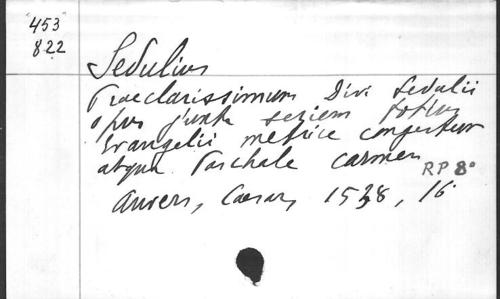 453
822
Sedulius
Praeclarissimum Divi Sedulii
opus juxta seriem totius
Evangelii metrice congestum
atque Paschale carmen
RP 8°
Anvers, Caesar, 1538, 16°